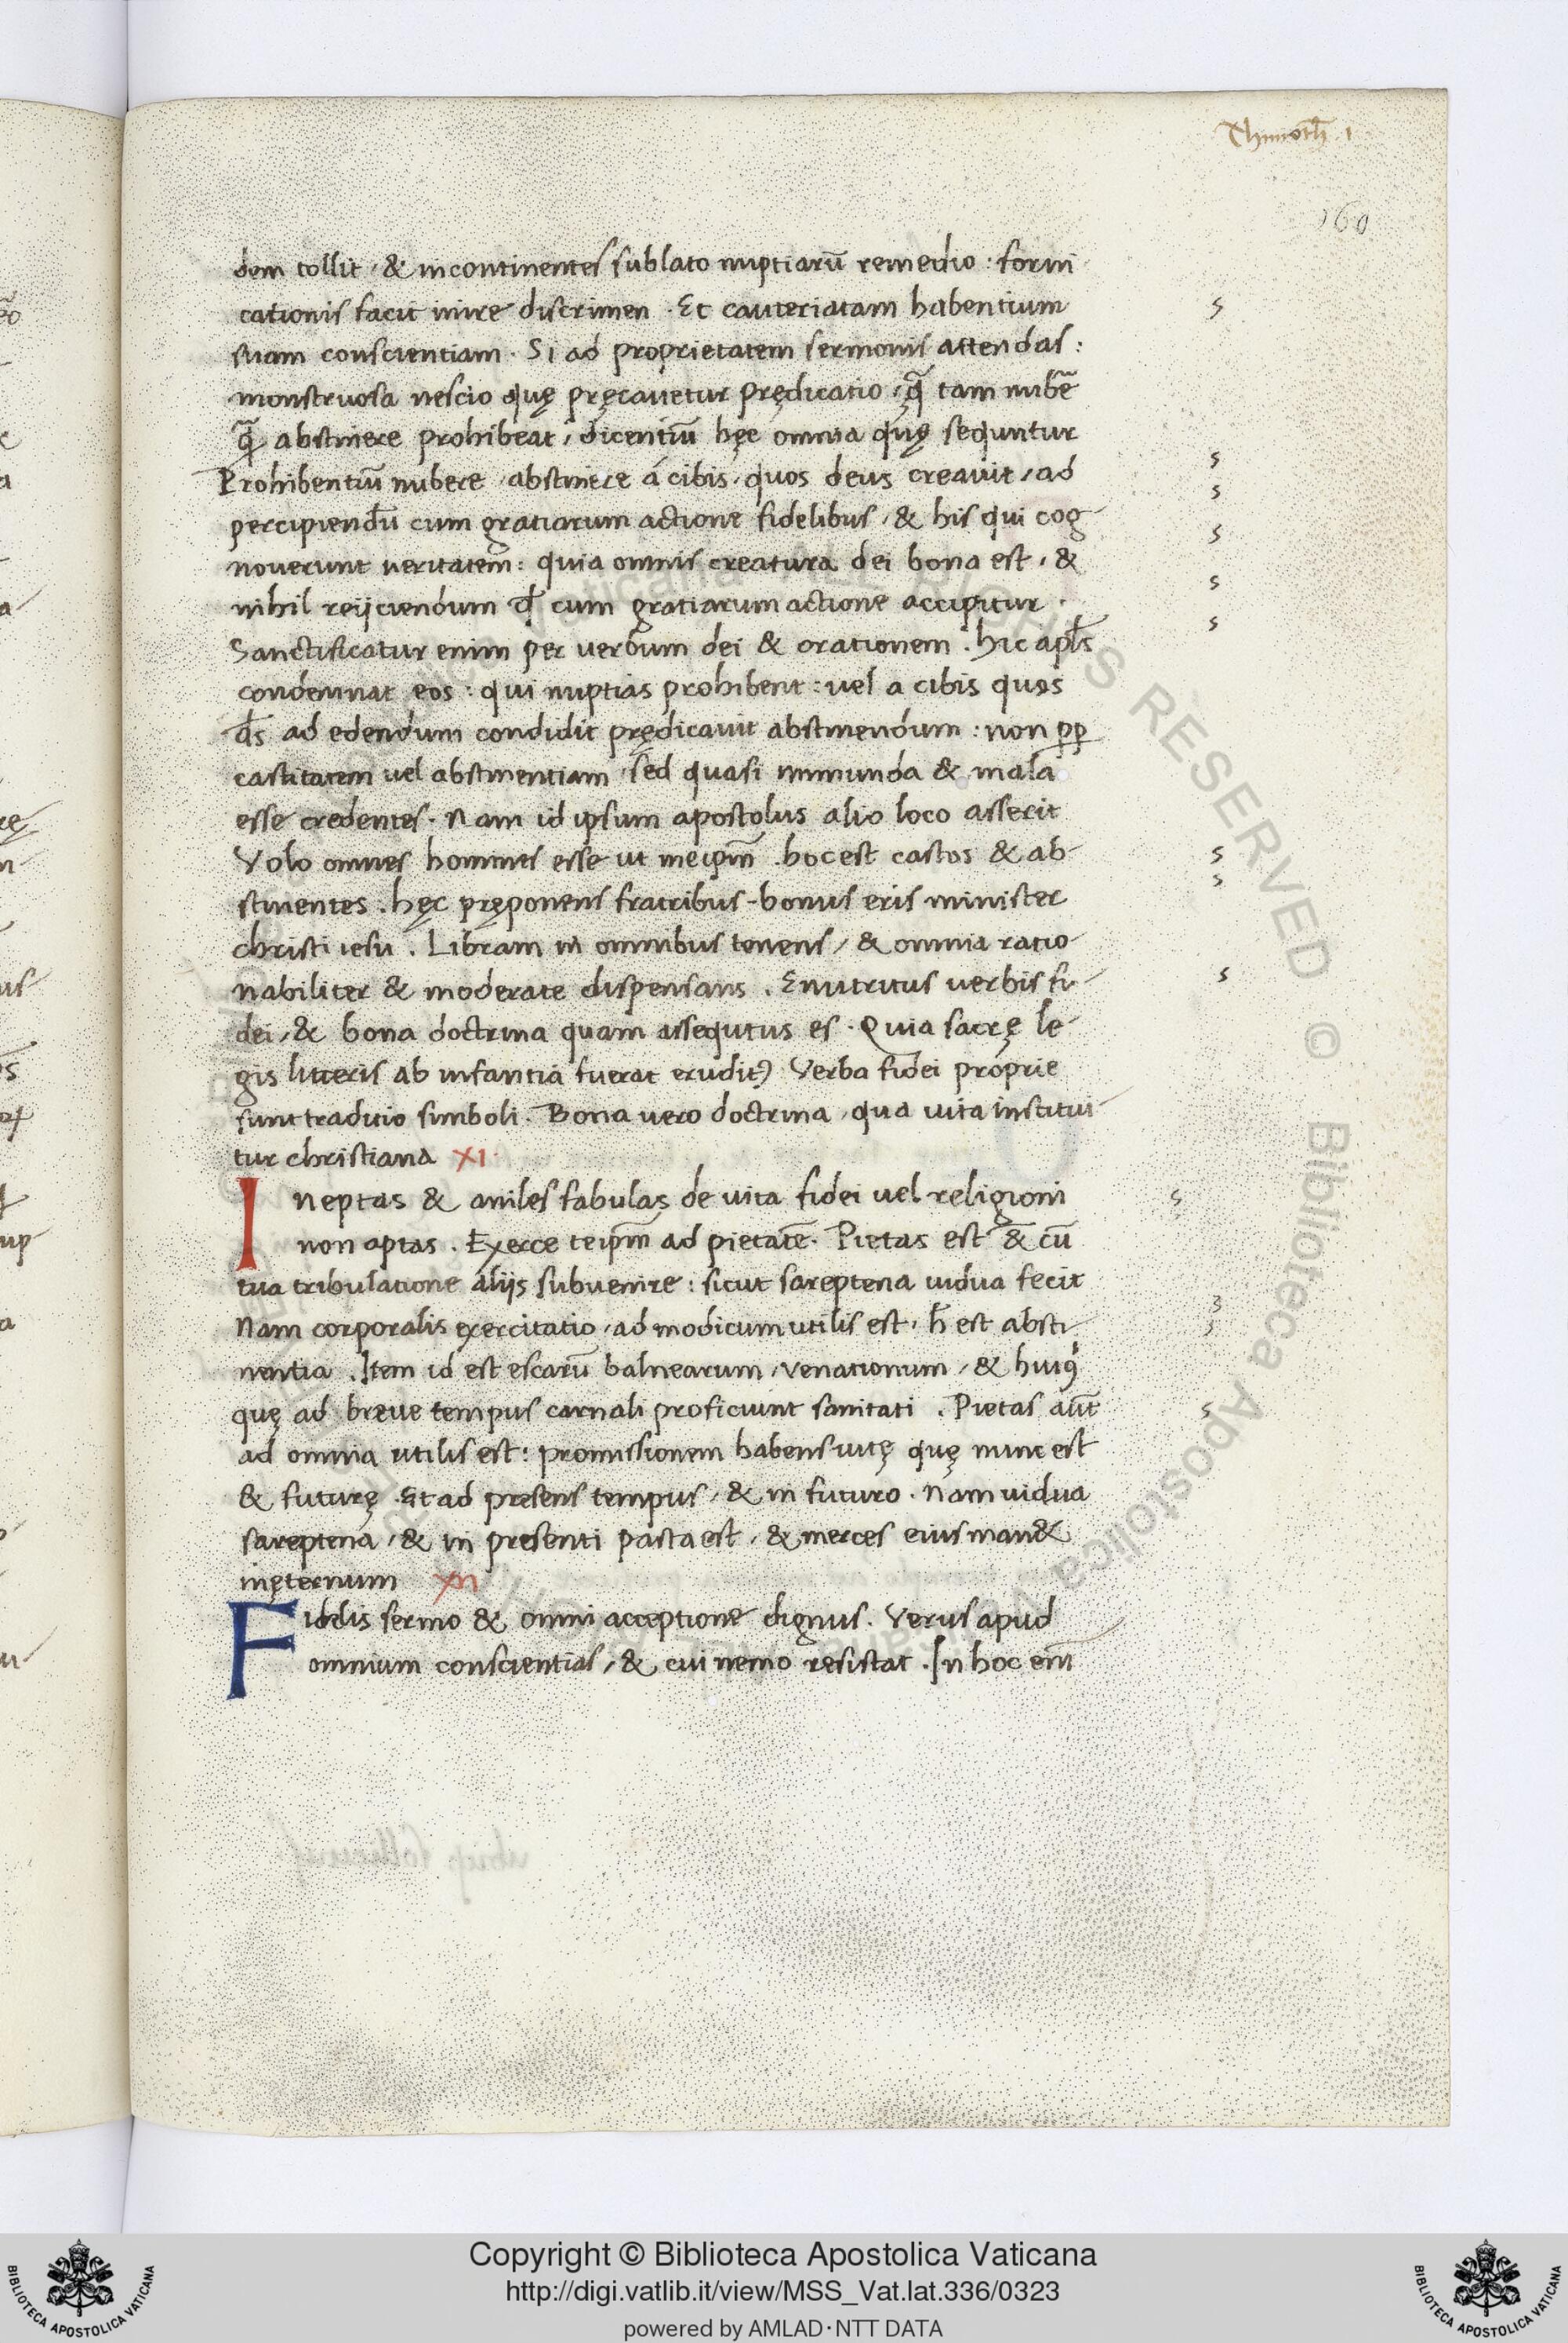 Thimoth̄. 1
160
dem tollit, & incontinentes sublato nuptiarū remedio: forni
cationis facit inire discrimen. Et cauteriatam habentium
suam conscientiam. Si ad proprietatem sermonis attendas:
monstruosa nescio quę pręcauetur prędicatio, q̄ tam nubē
q̄ abstinere prohibeat, dicentiū hęc omnia quę sequntur
Prohibentiū nubere, abstinere á cibis, quos deus creauit, ad
percipiendū cum gratiarum actione fidelibus, & his qui cog
nouerunt ueritatem: quia omnis creatura dei bona est, &
nihil reijciendum qđ cum gratiarum actione accipitur.
Sanctificatur enim per uerbum dei & orationem. hic apl̄s
condemnat eos: qui nuptias prohibent: uel a cibis quos
d̄s ad edendum condidit prędicauit abstinendum: non pp̄
castitatem uel abstinentiam, sed quasi immunda & mala
esse credentes. Nam id ipsum apostolus alio loco asserit
Volo omnes homines esse ut meip̄m. hoc est castos & ab-
stinentes. hęc pręponens fratribus-bonus eris minister
christi iesu. Libram in omnibus tenens, & omnia ratio-
nabiliter & moderate dispensans. Enutritus uerbis fi-
dei, & bona doctrina quam assequtus es. Quia sacrę le-
gis litteris ab infantia fuerat erudit⁹ Verba fidei proprie
sunt traditio simboli. Bona uero doctrina, qua uita institui-
tur christiana XI.
Ineptas & aniles fabulas deuita fidei uel religioni
non aptas. Exerce teip̄m ad pietatē. Pietas est & cū
tua tribulatione alijs subuenire: sicut sareptena uidua fecit
Nam corporalis exercitatio, ad modicum utilis est, h̄ est absti-
nentia. Item id est escarū balnearum, uenationum, & hui⁹
quę ad breue tempus carnali proficiunt sanitati. Pietas aūt
ad omnia utilis est: promissionem habens uitę quę nunc est
& futurę. Et ad presens tempus, & in futuro. Nam uidua
sareptena, & in presenti pasta est, & merces eius man&
inęternum XII
Fidelis sermo & omni acceptione dignus. Verus apud
omnium conscientias, & cui nemo resistat. In hoc eni̅
Copyright © Biblioteca Apostolica Vaticana
http://digi.vatlib.it/view/MSS_Vat.lat.336/0323
powered by AMLAD·NTT DATA
BIBLIOTECA APOSTOLICA VATICANA
BIBLIOTECA APOSTOLICA VATICANA